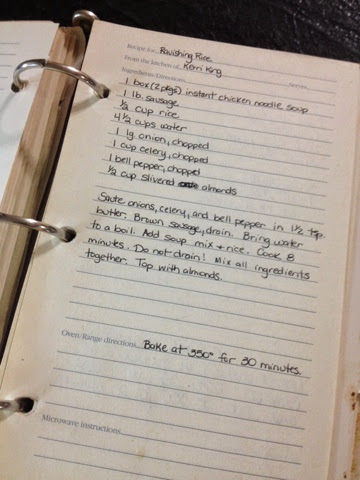 Recipe for: Ravishing Rice
From the kitchen of: Kerri King
Ingredients/Directions: Serves
1 box (2 pkgs) instant chicken noodle soup
1 lb. sausage
1/2 cup rice
4 1/2 cups water
1 lg. onion, chopped
1 cup celery, chopped
1 bell pepper, chopped
1/2 cup slivered almonds
Saute onions, celery, and bell pepper in 1 1/2 tsp.
butter. Brown sausage, drain. Bring water
to a boil. Add soup mix + rice. Cook 8
minutes. Do not drain! Mix all ingredients
together. Top with almonds.
Oven/Range directions Bake at 350° for 30 minutes.
Microwave instructions